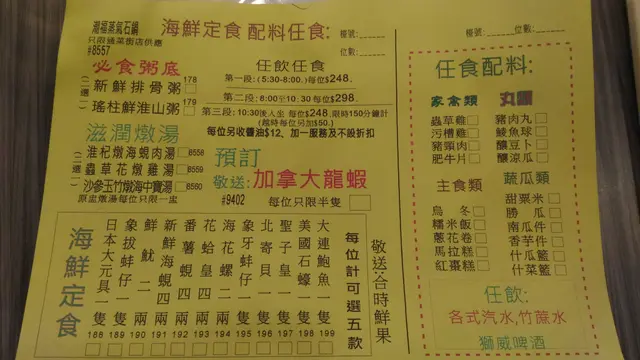 潮福蒸氣石鍋
只限通菜街店供應
#8557
海鮮定食 配料任食:
檯號:______
位數:______
必食粥底
(二選一)
新鮮排骨粥 178
瑤柱鮮淮山粥 179
任飲任食
第一段:(5:30-8:00.) 每位$248.
第二段: 8:00至10:30 每位$298.
第三段:10:30後入坐 每位$248.限時150分鐘計
(越時每位另加$50.)
每位另收醬油$12、加一服務及不設折扣
滋潤燉湯
(二選一)
淮杞燉海蜆肉湯 8558
蟲草花燉雞湯 8559
沙參玉竹燉海中寶湯 8560
原盅燉湯每位只限一盅
預訂
敬送:加拿大龍蝦
#9402
每位只限半隻
海鮮定食
日本大元貝一隻 188
象拔蚌仔一隻 189
鮮魷二兩 190
新鮮海蜆四兩 191
番薯蜆四兩 192
花蛤皇四兩 193
海花螺二兩 194
象牙蚌仔一隻 195
北寄貝一隻 196
聖子皇一隻 197
美國石蠔一隻 198
大連鮑魚一隻 199
每位計可選五款
敬送:合時鮮果
檯號:______ 位數:______
任食配料:
家禽類
蟲草雞
污糟雞
豬頸肉
肥牛片
丸類
豬肉丸
鯪魚球
釀豆卜
釀涼瓜
主食類
烏冬
糯米飯
蔥花卷
馬拉糕
紅棗糕
蔬瓜類
甜粟米
勝瓜
南瓜件
香芋件
什瓜籃
什菜籃
任飲:
各式汽水,竹蔗水
獅威啤酒